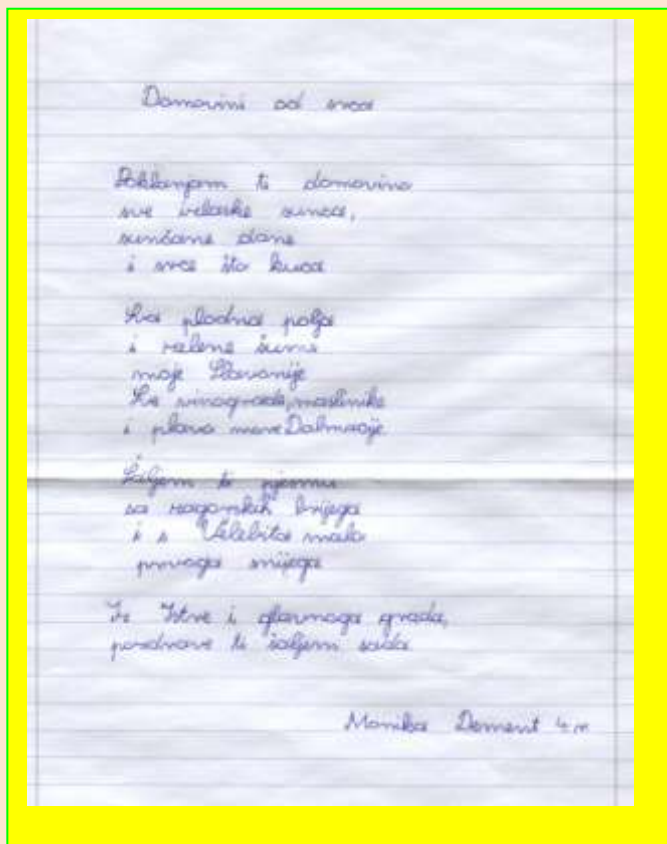 Domovini od srca
Poklanjam ti domovino
sve zlatke sunca,
sunčane dane
i srce što kuca
Za plodna polja
i zelene šume
moje Slavonije
Za vinograde, maslinike
i plavo more Dalmacije
Šaljem ti pjesmu
sa zagorskih brijega
i s Velebita malo
prvoga snijega
Iz Istre i glavnoga grada,
pozdrave ti šaljem sada
Monika Dement 4.r